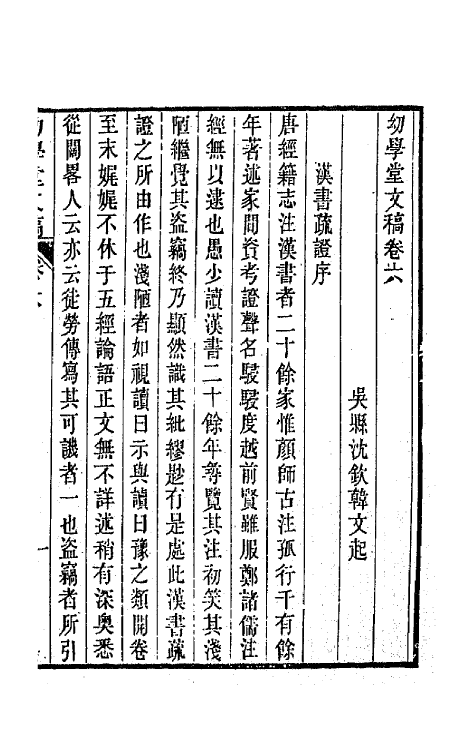 幼學堂文稿卷六
吳縣沈欽韓文起
漢書疏證序
唐經籍志注漢書者二十餘家惟顏師古注孤行千有餘
年著述家間資考證聲名駸駸度越前賢雖服鄭諸儒注
經無以逮也愚少讀漢書二十餘年尋覽其注初笑其淺
陋繼覺其盜竊終乃顯然識其紕繆尟有是處此漢書疏
證之所由作也淺陋者如視讀曰示與讀曰豫之類開卷
至末娓娓不休于五經論語正文無不詳述稍有深奧悉
從闕畧人云亦云徒勞傳寫其可譏者一也盜竊者所引
幼學堂文稿 卷六 一